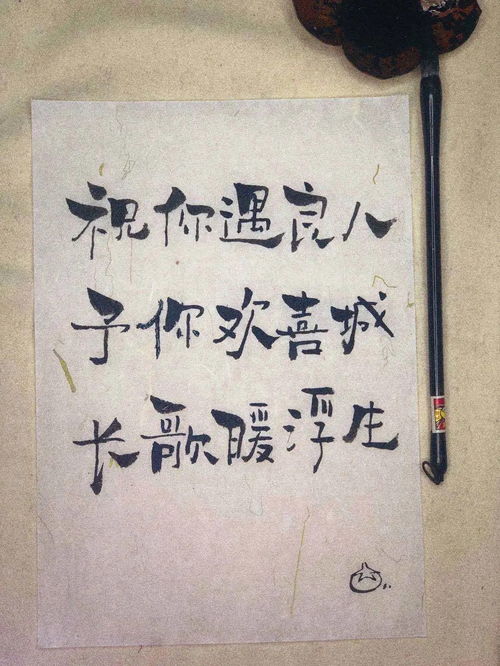 祝你遇良人
予你欢喜城
长歌暖浮生